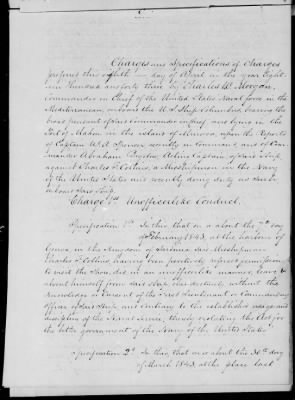 Charges and Specifications of Charges
preferred this eighth day of April in the year Eight-
een Hundred and forty three by Charles W. Morgan,
Commander in Chief of the United States Naval force in the
Mediterranean, on board the U.S. Ship Columbus, bearing the
broad pennant of said Commander in Chief and lying in the
Port of Mahon in the island of Minorca, upon the Reports
of Captain W. A. Spencer recently in command, and of Com-
mander Abraham Bigelow Acting Captain of said Ship
against Charles F. Collins, a Midshipman in the Navy
of the United States and recently doing duty on board
aboard said Ship.
Charge 1st Unofficerlike Conduct.
Specification 1st In this that on or about the 7th day
of February 1843, at the harbor of
Genoa, in the Kingdom of Sardinia said Midshipman
Charles F. Collins, having been positively refused permission
to visit the Shore, did in an unofficerlike manner, leave &
about himself from said Ship, clandestinely without the
knowledge or consent of the First Lieutenant or Commanding
officer of said Ship and contrary to the established usage and
discipline of the Naval Service, thereby violating the Act for
the better government of the Navy of the United States.
Specification 2d In this that on or about the 30th day
of March 1843, at the place last